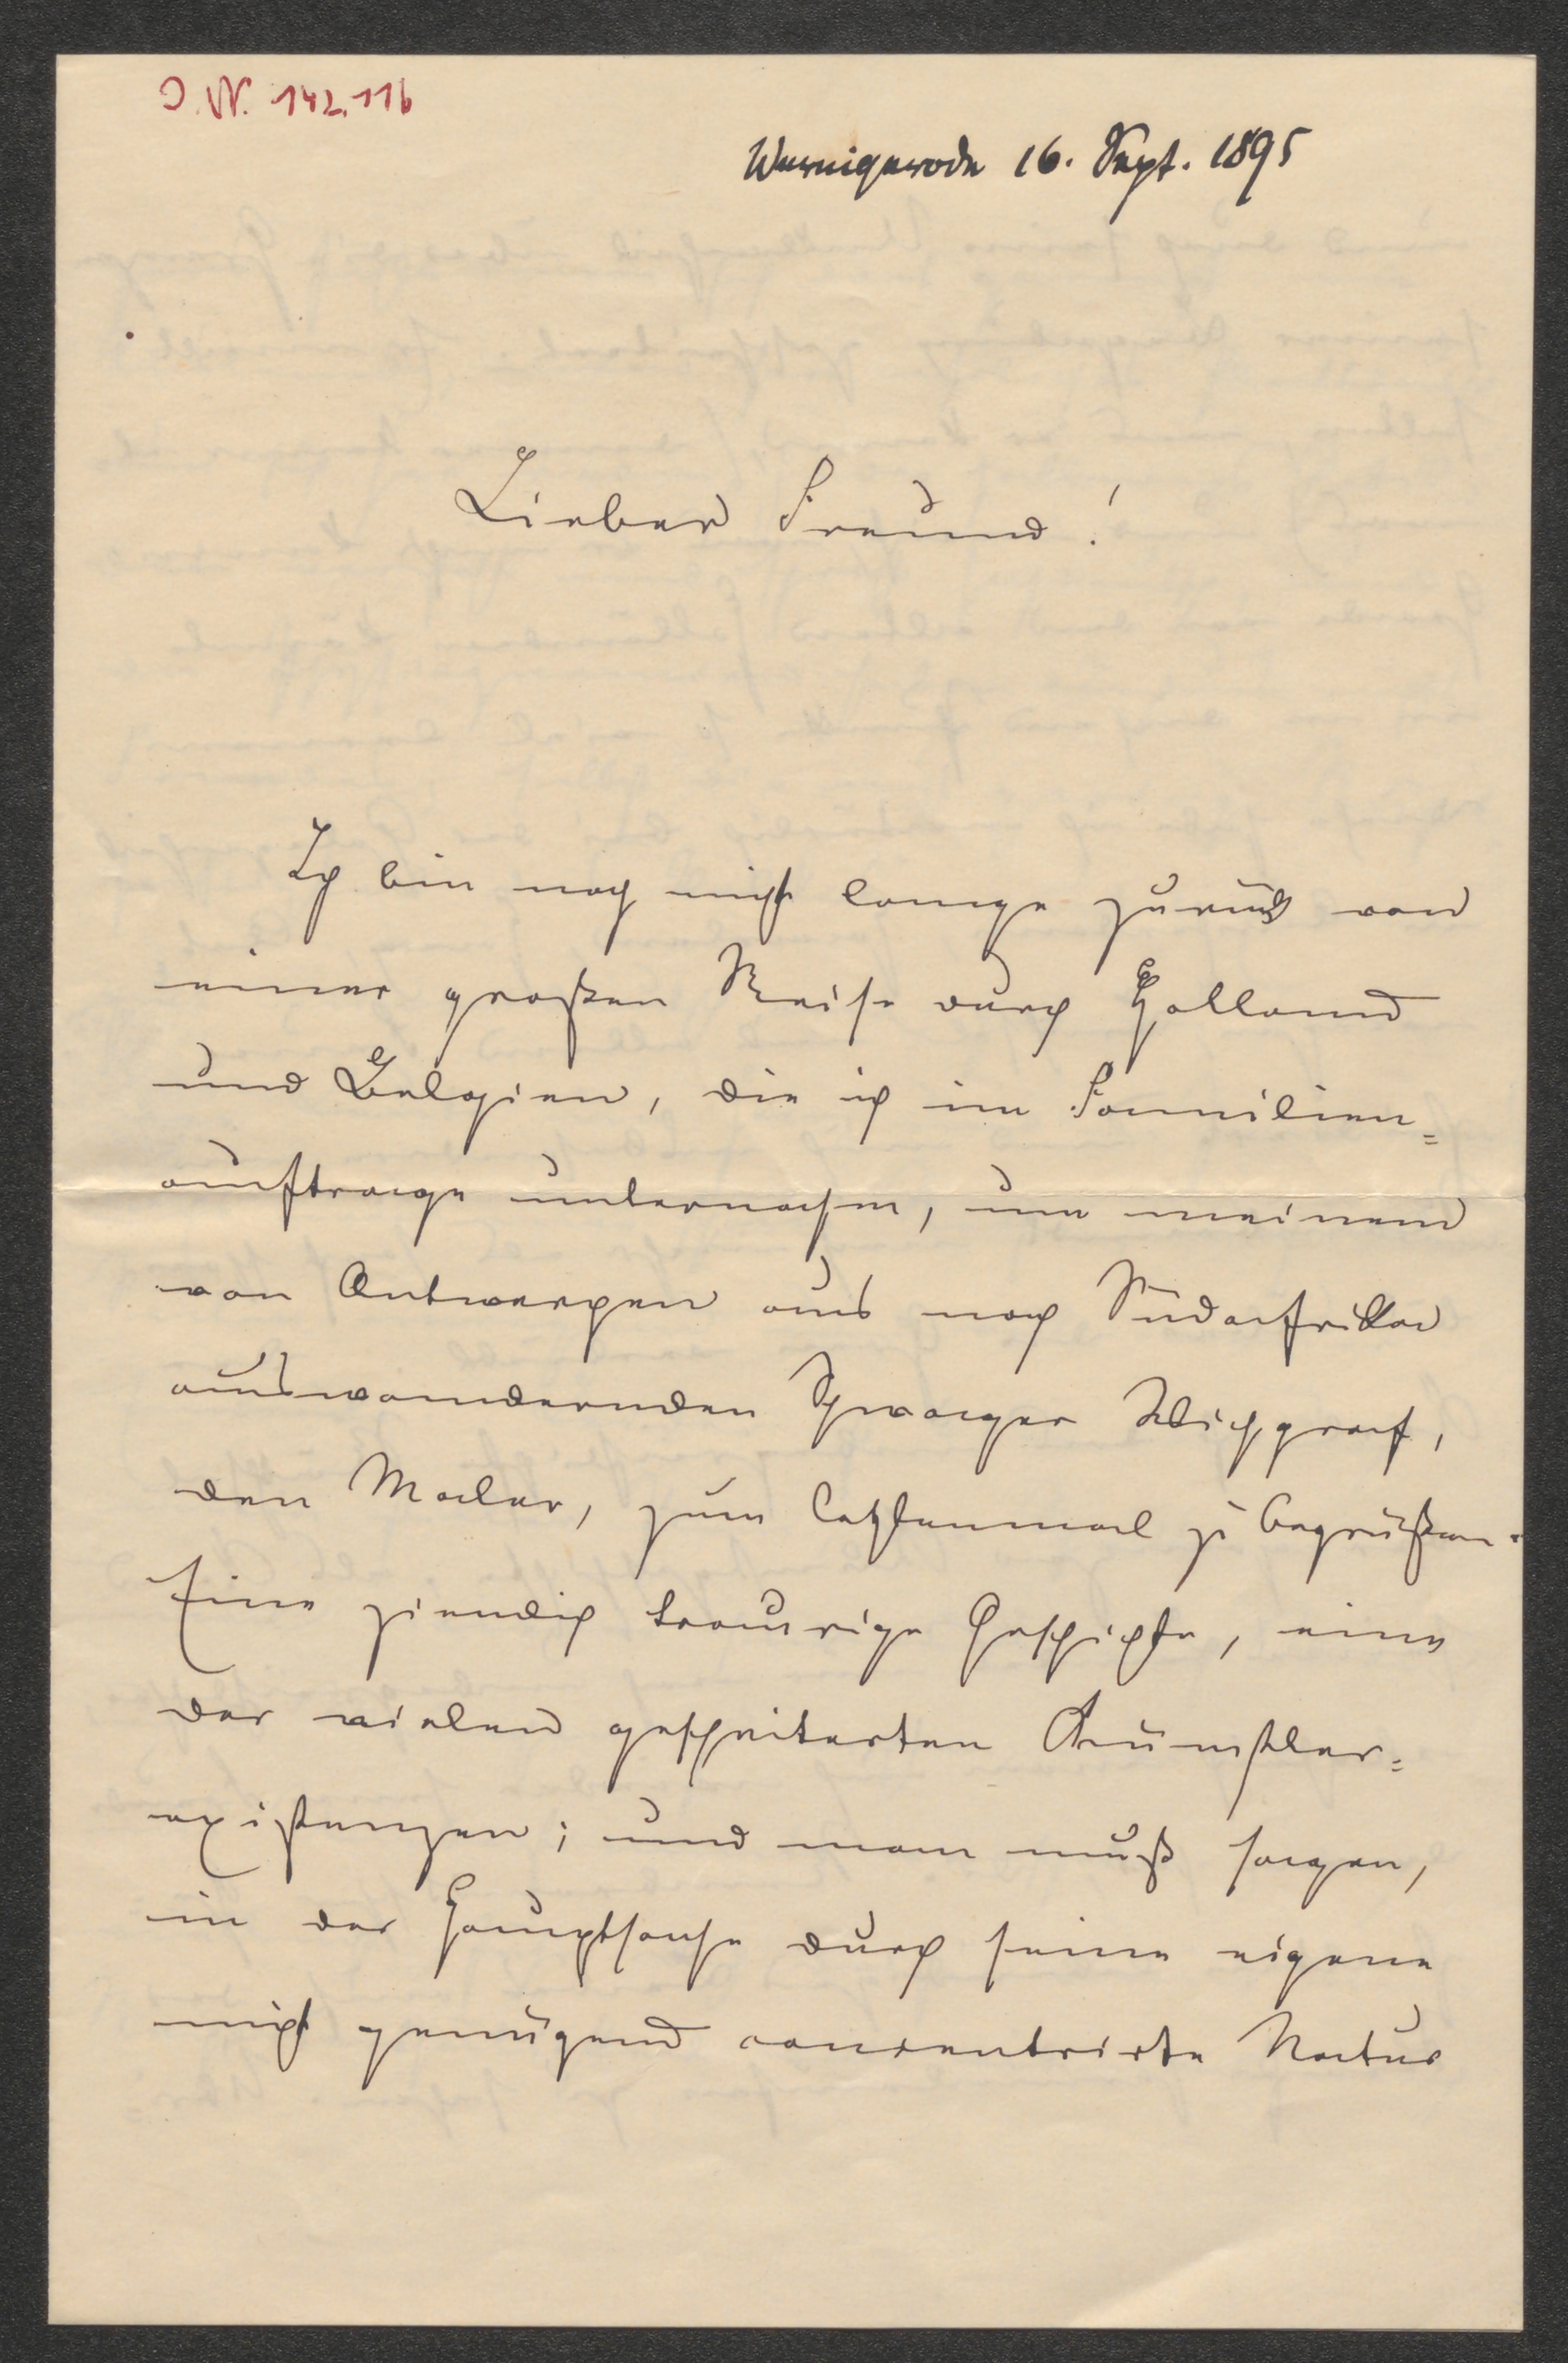 J.N. 142.116
Wernigerode 16. Sept. 1895
Lieber Freund!
Ich bin noch nicht lange zurück von
einer großen Reise durch Holland
und Belgien, die ich im Familien=
auftrage unternahm, um meinen
von Antwerpen aus nach Südafrika
auswandernden Schwager Wichgraf,
den Maler, zum letztenmal zu begrüßen.
Eine ziemlich traurige Geschichte, eine
der vielen gescheiterten Künstler=
existenzen; und man muß sagen,
in der Hauptsache durch seine eigene
nicht genügend concentrirte Natur